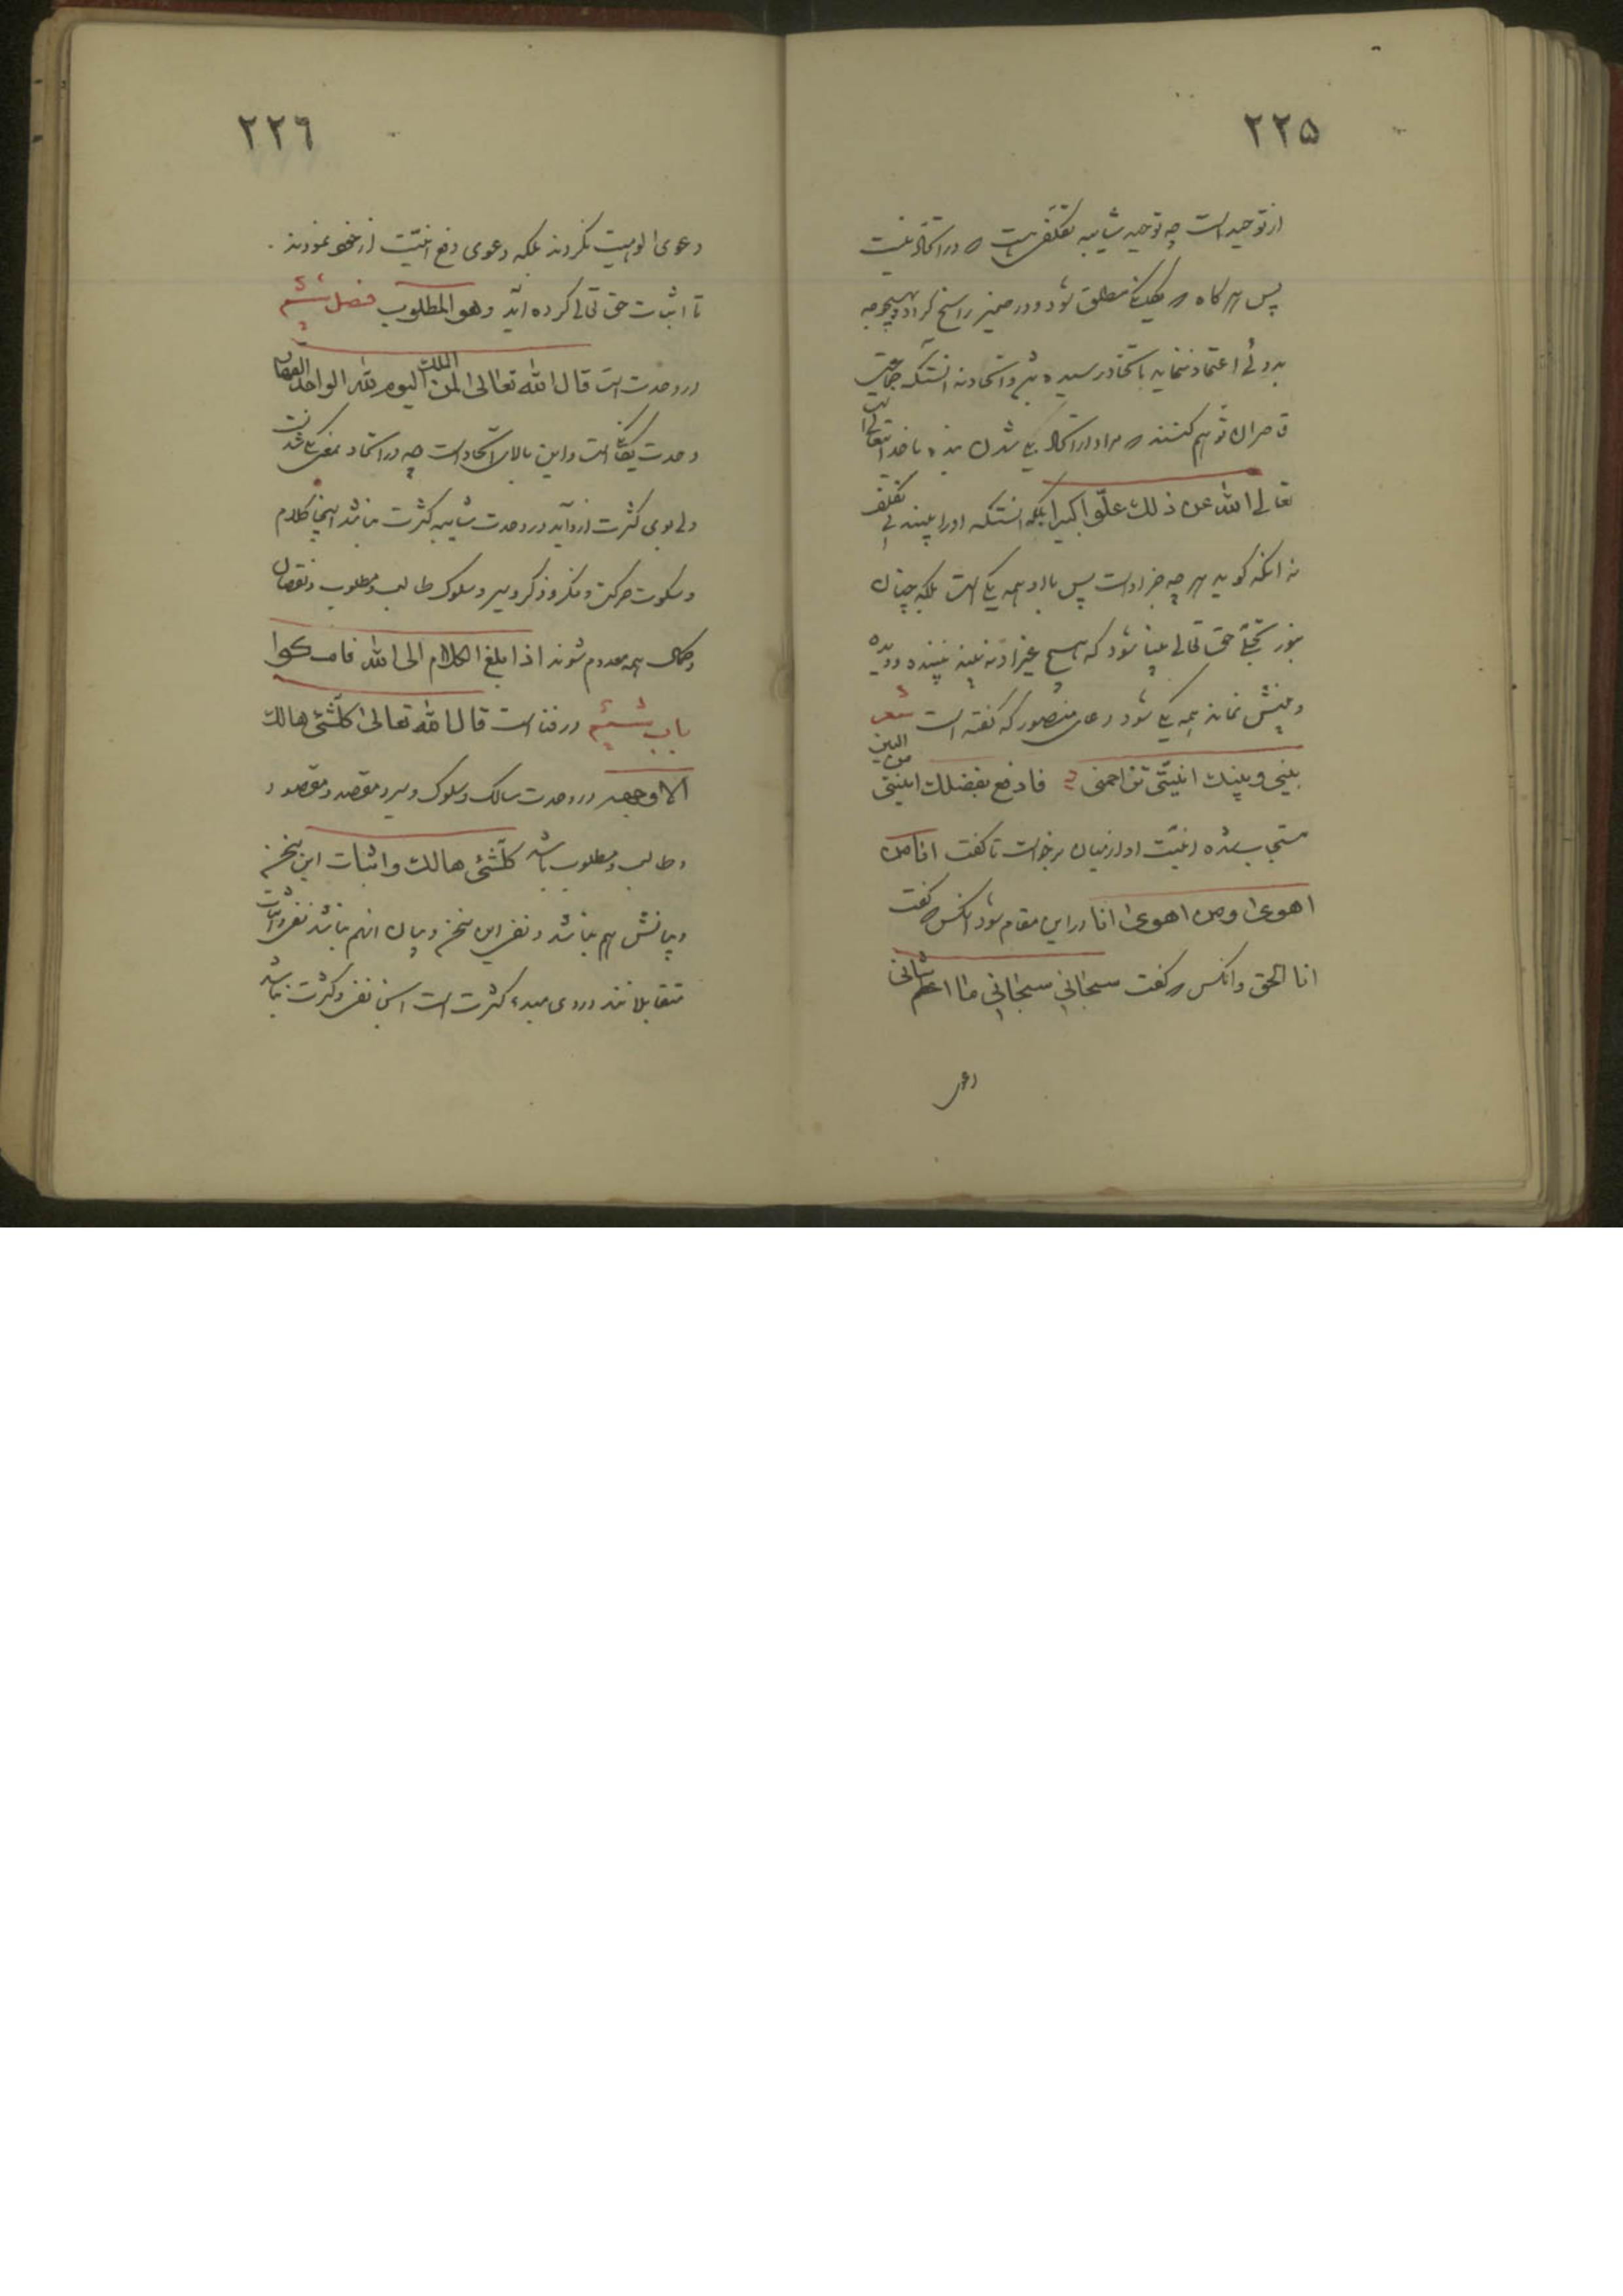 ۲۲۵
از توحید است چه توحید شایبه تکلفی هست که در اتحاد نیست
پس هر گاه که یگانکی مطلق شود و در ضمیر راسخ کردد و بهیچوجه
بدوئی اعتماد ننماید باتحاد رسیده باشد و اتحاد نه انستکه جماعتی
قاصران توهم کنند که مراد از اتحاد یکی شدن بنده با خدایتعالی است
تعالی الله عن ذلك علّوا کبیرا بلکه انستکه او را بینند بی تکلف
نه انکه کوید هر چه جز او است پس با او همه یکی است بلکه چنان
بنور تجلّی حق تعالی بینا شود که هیچ غیر او نه بیند بیننده و دیده
و بینش نماند همه یکی شود دعای منصور که کفته است شعر
بینی وبینك انیّتی تزاحمنی فادفع بفضلك انیتی من البین
مستجاب شده انیّت او از میان برخواست تا کفت انا من
اهوی ومن اهوی انا در این مقام شود انکس که کفت
انا الحق و انکس که کفت سبحانی سبحانی ما اعظم شانی
دعوی
۲۲٦
دعوی الوهیت نکردند بلکه دعوی دفع انیّت از خود نمودند
تا اثبات حق تعالی کرده آید وهو المطلوب فصل ششم
در وحدت است قال الله تعالی لمن الملك الیوم لله الواحد القهار
وحدت یگانکی است و این بالای اتحاد است چه در اتحاد بمعنی یکی شدنست
ولی بوی کثرت از و آید در وحدت شایبه کثرت نباشد اینجا کلام
و سکوت حرکت و فکر و ذکر و سیر و سلوک طالب و مطلوب و نقصان
و کمال همه معدوم شوند اذا بلغ الکلام الی الله فامسکوا
باب ششم در فنا است قال الله تعالی کلّشئ هالك
الا وجهه در وحدت سالک و سلوک و سیر و مقصد و مقصود و
و طالب و مطلوب باشد کلّشئ هالك و اثبات این سخن
و بیانش هم نباشد و نفی این سخن و بیان انهم نباشد نفی و اثبات
متقابلانند و دوی مبدء کثرت است اینی نفی و کثرت نباشد